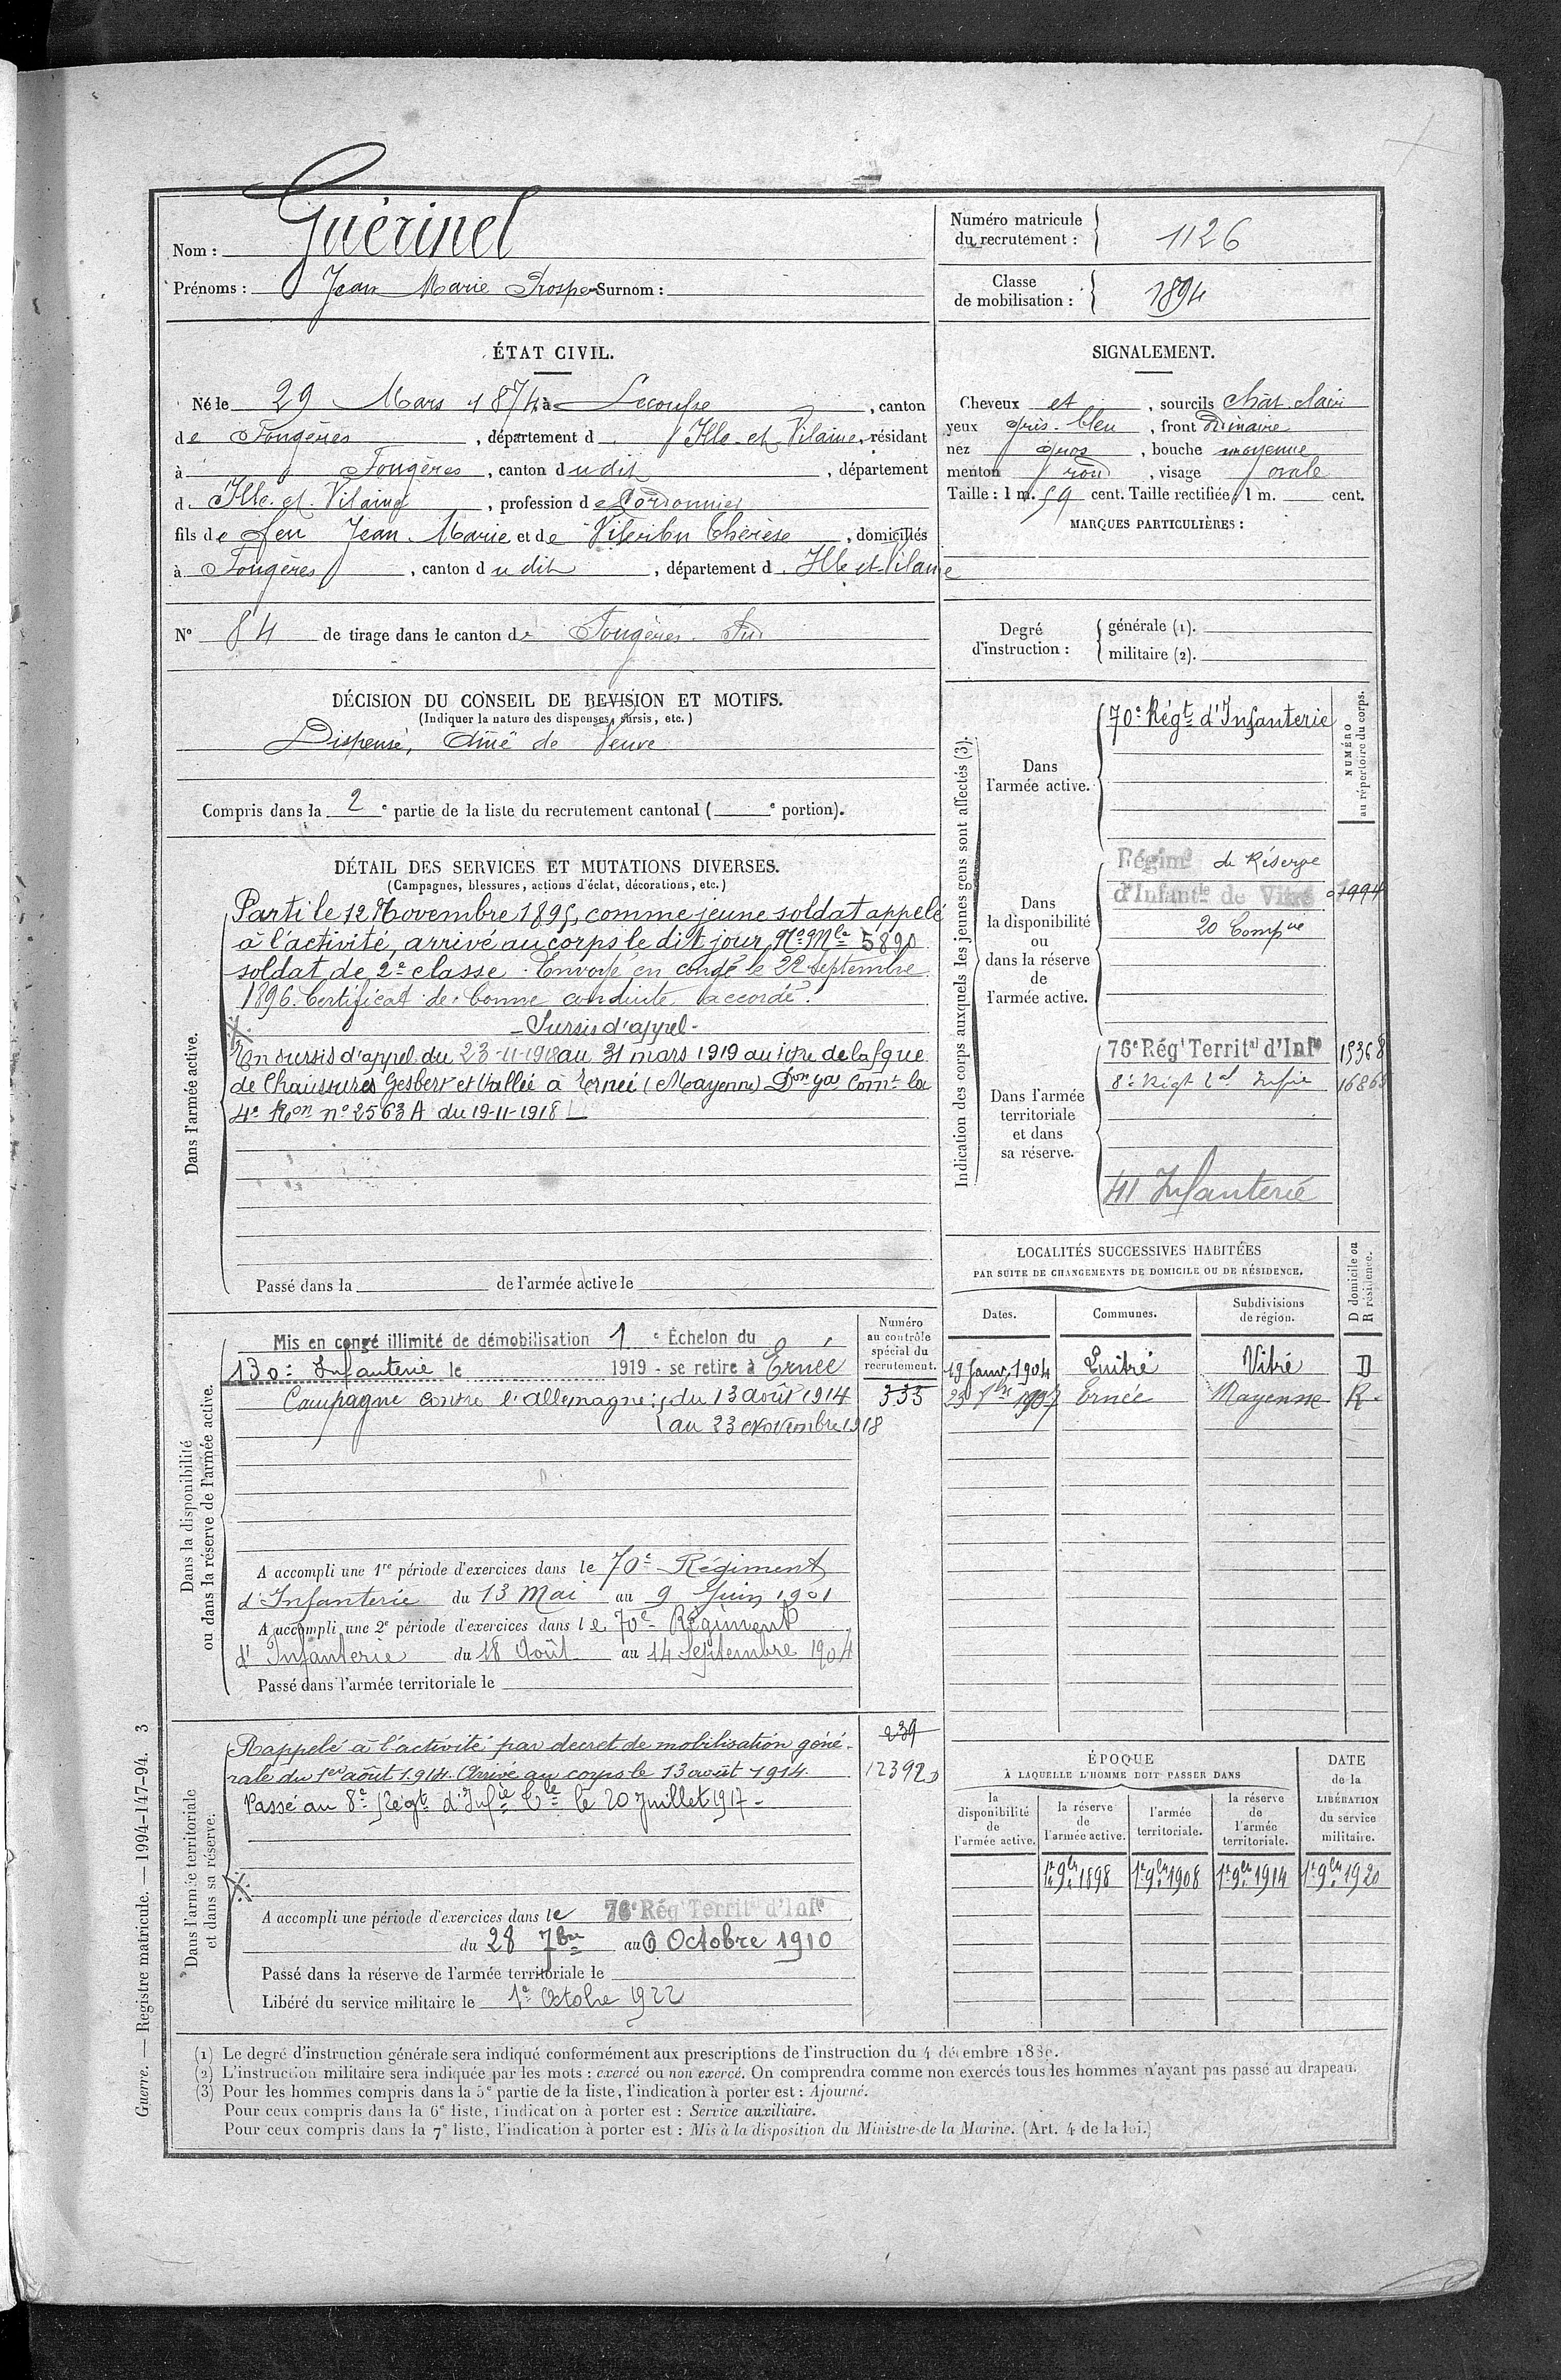 Nom : Guérinel
Prénoms : Jean Marie Prosper Surnom :
Numéro matricule du recrutement : 1126
Classe de mobilisation : 1894
ÉTAT CIVIL.
Né le 29 Mars 1874 à Lecousse, canton
de Fougères, département d Ille-et-Vilaine, résidant
à Fougères, canton dudit, département
d. Ille-et-Vilaine, profession de Cordonnier
fils de feu Jean Marie et de Thérèse, domiciliés
à Fougères, canton dudit, département d. Ille et Vilaine
N° 84 de tirage dans le canton de Fougères Sud
SIGNALEMENT.
Cheveux et, sourcils chât. clair
yeux gris-bleu, front ordinaire
nez gros, bouche moyenne
menton rond, visage ovale
Taille : 1 m. 59 cent. Taille rectifiée : 1 m. cent.
MARQUES PARTICULIÈRES :
Degré d'instruction : générale (1).
militaire (2).
DÉCISION DU CONSEIL DE REVISION ET MOTIFS.
(Indiquer la nature des dispenses, sursis, etc.)
Dispensé, Aîné de Veuve
Compris dans la 2e partie de la liste du recrutement cantonal ( e portion).
DÉTAIL DES SERVICES ET MUTATIONS DIVERSES.
(Campagnes, blessures, actions d'éclat, décorations, etc.)
Dans l'armée active.
Parti le 12 Novembre 1895, comme jeune soldat appelé
à l'activité, arrivé au corps le dit jour, No Mle 5890
soldat de 2e classe. Envoyé en congé le 22 septembre
1896. Certificat de bonne conduite accordé.
- Sursis d'appel -
En sursis d'appel du 23-11-1918 au 31 mars 1919 au titre de la fque
de Chaussures Gesbert et Vallée à Ernée (Mayenne) Don Gal Comt la
4e Ron n° 2563 A du 19-11-1918
Passé dans la de l'armée active le
Indication des corps auxquels les jeunes gens sont affectés (3).
NUMÉRO au répertoire du corps.
Dans l'armée active.
70e Régt d'Infanterie
Dans la disponibilité ou dans la réserve de l'armée active.
Régimt de Réserve
d'Infantie de Vitré 1994
20 Compie
Dans l'armée territoriale et dans sa réserve.
76e Régt Territal d'Infie 15368
8e Régt Infie
41 Infanterie
LOCALITÉS SUCCESSIVES HABITÉES
PAR SUITE DE CHANGEMENTS DE DOMICILE OU DE RÉSIDENCE.
Dates. Communes. Subdivisions de région. D domicile ou R résidence.
19 Janv. 1904 Luitré Vitré D
Ernée Mayenne R.
Dans la disponibilité ou dans la réserve de l'armée active.
Numéro au contrôle spécial du recrutement.
Mis en congé illimité de démobilisation 1e Échelon du
130e Infanterie le 1919 - se retire à Ernée
Campagne contre l'Allemagne : du 13 août 1914 333
au 23 Novembre 1918
A accompli une 1re période d'exercices dans le 70e Régiment
d'Infanterie du 13 Mai au 9 Juin 1901
A accompli une 2e période d'exercices dans le 70e Régiment
d'Infanterie du 18 Août au 14 Septembre 1904
Passé dans l'armée territoriale le
Dans l'armée territoriale et dans sa réserve.
Rappelé à l'activité par décret de mobilisation géné- 239
rale du 1er août 1914. Arrivé au corps le 13 août 1914. 12392
Passé au 8e Régt d'Infie Tle le 20 Juillet 1917 -
A accompli une période d'exercices dans le 76e Régt Territal d'Infie
du 28 7bre au 6 Octobre 1910
Passé dans la réserve de l'armée territoriale le
Libéré du service militaire le 1e Octobre 1922
ÉPOQUE
À LAQUELLE L'HOMME DOIT PASSER DANS
la disponibilité de l'armée active. la réserve de l'armée active. l'armée territoriale. la réserve de l'armée territoriale. DATE de la LIBÉRATION du service militaire.
1er 9bre 1898 1er 9bre 1908 1er 9bre 1914 1er 9bre 1920
(1) Le degré d'instruction générale sera indiqué conformément aux prescriptions de l'instruction du 4 décembre 1889.
(2) L'instruction militaire sera indiquée par les mots : exercé ou non exercé. On comprendra comme non exercés tous les hommes n'ayant pas passé au drapeau.
(3) Pour les hommes compris dans la 5e partie de la liste, l'indication à porter est : Ajourné.
Pour ceux compris dans la 6e liste, l'indication à porter est : Service auxiliaire.
Pour ceux compris dans la 7e liste, l'indication à porter est : Mis à la disposition du Ministre de la Marine. (Art. 4 de la loi.)
Guerre. — Registre matricule. — 1994-147-94. 3